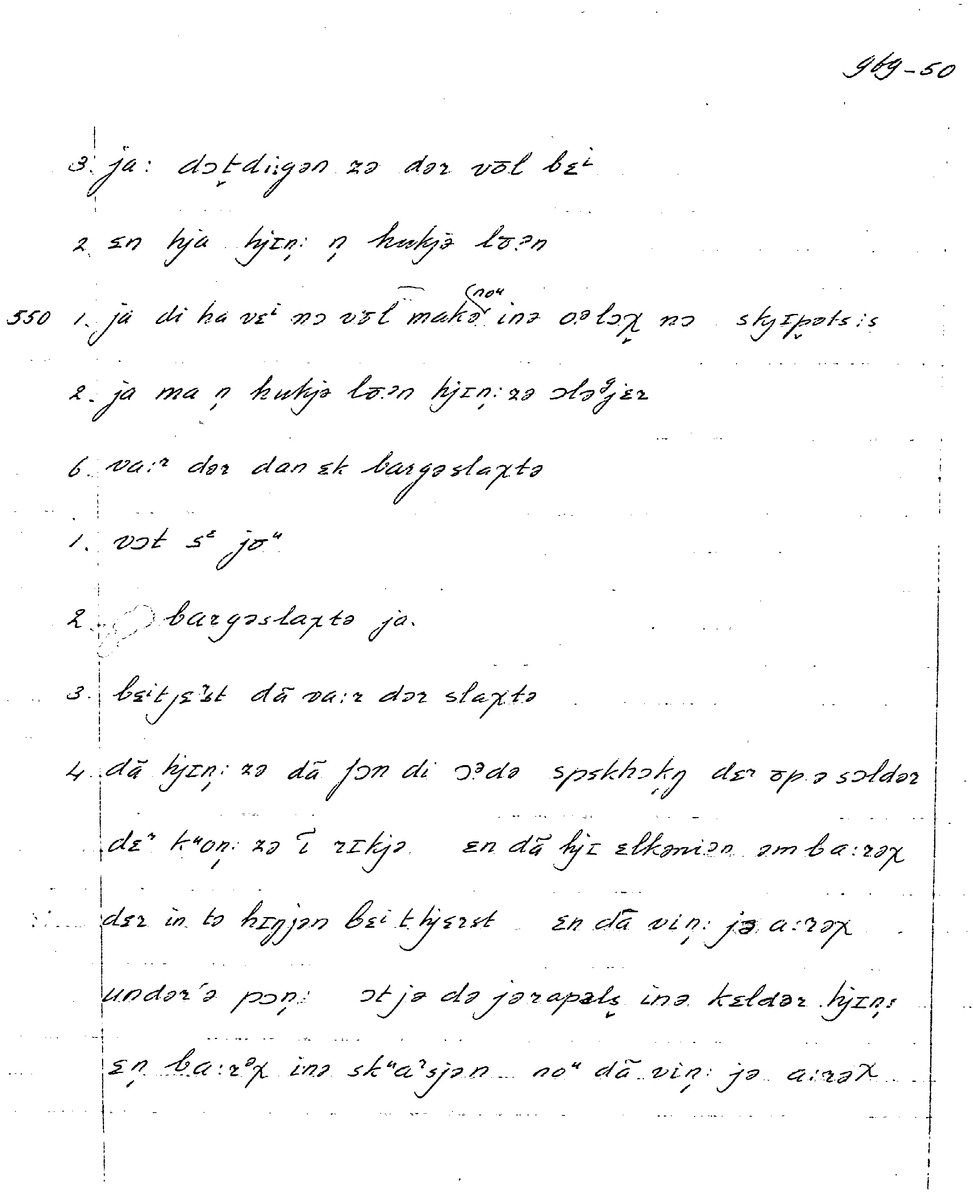 969-50
3. ja: dɔt̬di:gən zə dər vōl bɛⁱ
2. ɛn hja hjɪn̩: n̩ hukjə lō.ən
550 1. ja di ha vɛⁱ nɔ vōl makə (noᵘ inə o.əlɔχ̬ nɔ skyɪp̬əts:is
2. ja ma n̩ hukjə lō.ən hjɪn̩: zə ɔləᵊjɛr
6. va:ʳ dər dan ɛk bargəslaχtə
1. vɔt sᶻ joᵘ
2. bargəslaχtə ja.
3. bɛⁱtjɛʳst dā va:r dər slaχtə
4. dā hjɪn̩: zə dā fɔn di ɔᵊdə spɛkhɔk̩ŋ dɛr ōp.ə sɔldər
dɛʳ kᵘon̩: zə ī rɪkjə ɛn dā hjɪ ɛlkəniən əm ba:rəχ
dɛr in tə hɪŋjən bɛⁱ t hjɛrst ɛn dā vin̩: jə a:rəχ
undər'ə pɔn̩: ɔt jə də jərapəls̬ inə kɛldər hjɪn̩:
ɛn̩ ba:rᵊχ inə skᵘaʳsjən noᵘ dā vin̩: jə a:rəχ